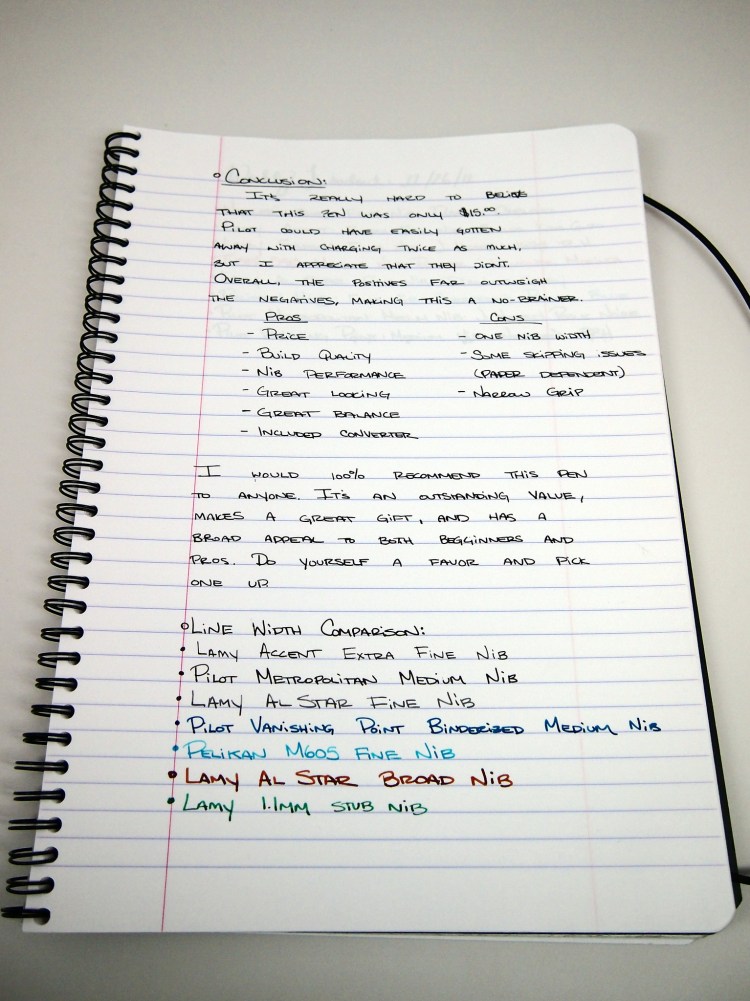 Conclusion:
It's really hard to believe
that this pen was only $15.00.
Pilot could have easily gotten
away with charging twice as much,
but I appreciate that they didn't.
Overall, the positives far outweigh
the negatives, making this a no-brainer.
Pros Cons
- Price - One nib width
- Build Quality - Some skipping issues
- Nib Performance (paper dependent)
- Great Looking - Narrow Grip
- Great Balance
- Included Converter
I would 100% recommend this pen
to anyone. It's an outstanding value,
makes a great gift, and has a
broad appeal to both begginners and
pros. Do yourself a favor and pick
one up.
Line Width Comparison:
• Lamy Accent Extra Fine Nib
• Pilot Metropolitan Medium Nib
• Lamy Al Star Fine Nib
• Pilot Vanishing Point Binderized Medium Nib
• Pelikan M605 Fine Nib
• Lamy Al Star Broad Nib
• Lamy 1.1mm Stub Nib